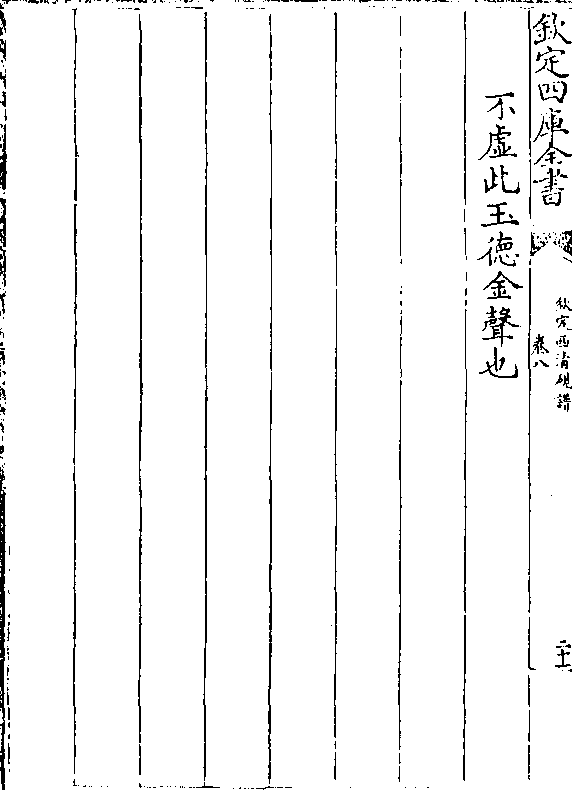 欽定四庫全書
欽定西清硯譜
卷八
二十一
不虛此玉德金聲也